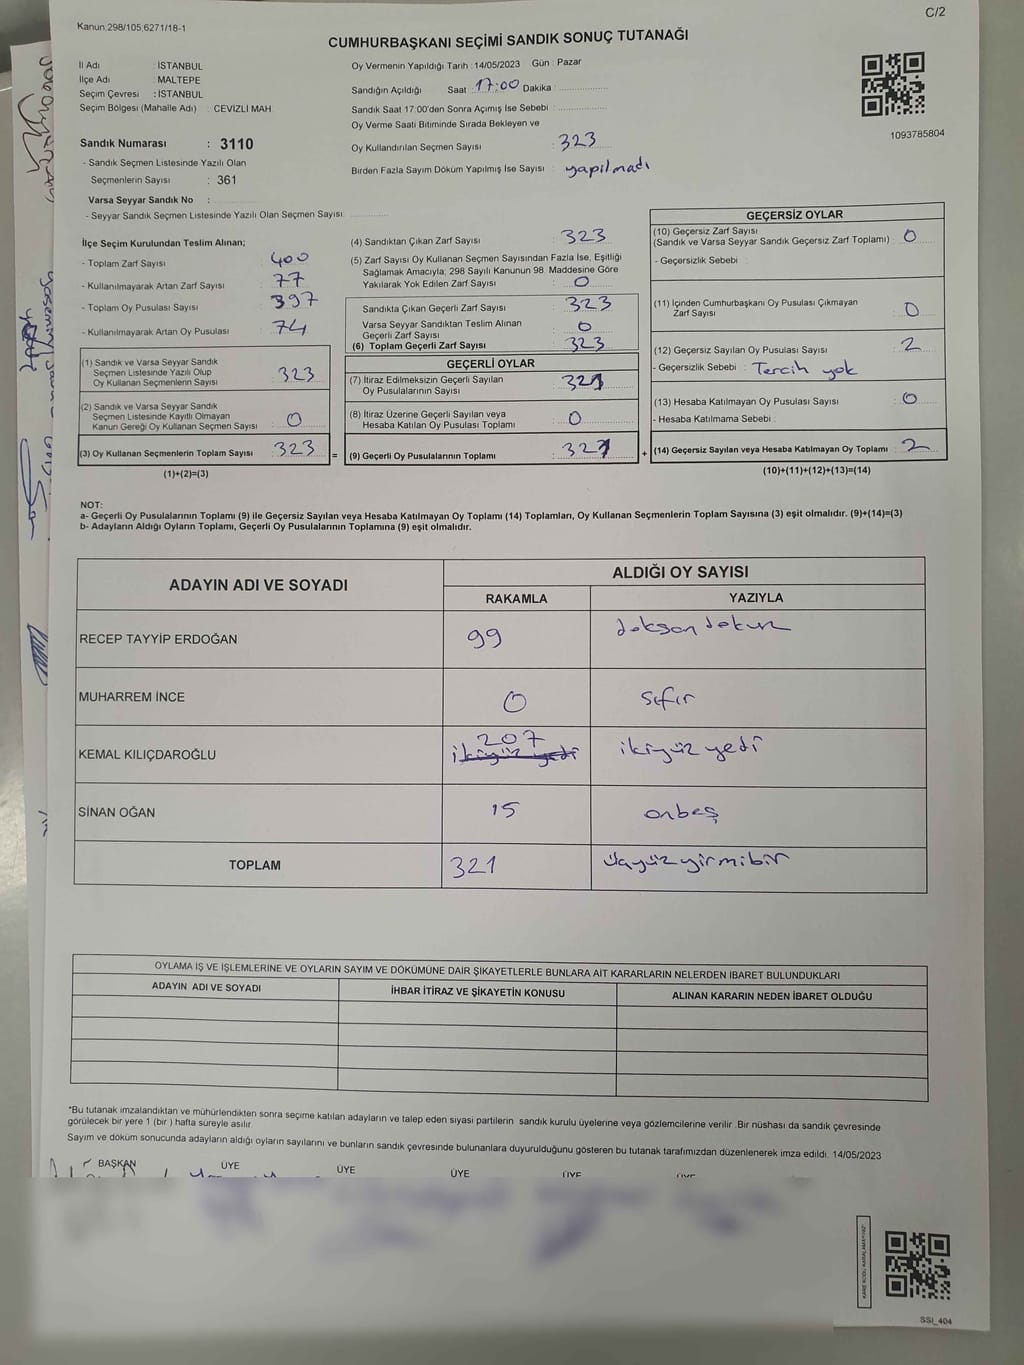 C/2
Kanun:298/105;6271/18-1
CUMHURBAŞKANI SEÇİMİ SANDIK SONUÇ TUTANAĞI
İl Adı : İSTANBUL
İlçe Adı : MALTEPE
Seçim Çevresi : İSTANBUL
Seçim Bölgesi (Mahalle Adı) : CEVİZLİ MAH
Oy Vermenin Yapıldığı Tarih : 14/05/2023 Gün : Pazar
Sandığın Açıldığı Saat : 17:00 Dakika :
Sandık Saat 17:00'den Sonra Açılmış İse Sebebi :
Oy Verme Saati Bitiminde Sırada Bekleyen ve
Oy Kullandırılan Seçmen Sayısı : 323
Birden Fazla Sayım Döküm Yapılmış İse Sayısı : yapılmadı
1093785804
Sandık Numarası : 3110
- Sandık Seçmen Listesinde Yazılı Olan
Seçmenlerin Sayısı : 361
Varsa Seyyar Sandık No :
- Seyyar Sandık Seçmen Listesinde Yazılı Olan Seçmen Sayısı:
İlçe Seçim Kurulundan Teslim Alınan;
- Toplam Zarf Sayısı : 400
- Kullanılmayarak Artan Zarf Sayısı : 77
- Toplam Oy Pusulası Sayısı : 397
- Kullanılmayarak Artan Oy Pusulası : 74
(1) Sandık ve Varsa Seyyar Sandık
Seçmen Listesinde Yazılı Olup
Oy Kullanan Seçmenlerin Sayısı : 323
(2) Sandık ve Varsa Seyyar Sandık
Seçmen Listesinde Kayıtlı Olmayan
Kanun Gereği Oy Kullanan Seçmen Sayısı : 0
(3) Oy Kullanan Seçmenlerin Toplam Sayısı : 323 =
(1)+(2)=(3)
(4) Sandıktan Çıkan Zarf Sayısı : 323
(5) Zarf Sayısı Oy Kullanan Seçmen Sayısından Fazla İse, Eşitliği
Sağlamak Amacıyla; 298 Sayılı Kanunun 98. Maddesine Göre
Yakılarak Yok Edilen Zarf Sayısı : 0
Sandıkla Çıkan Geçerli Zarf Sayısı : 323
Varsa Seyyar Sandıktan Teslim Alınan
Geçerli Zarf Sayısı : 0
(6) Toplam Geçerli Zarf Sayısı : 323
GEÇERLİ OYLAR
(7) İtiraz Edilmeksizin Geçerli Sayılan
Oy Pusulalarının Sayısı : 321
(8) İtiraz Üzerine Geçerli Sayılan veya
Hesaba Katılan Oy Pusulası Toplamı : 0
(9) Geçerli Oy Pusulalarının Toplamı : 321 +
GEÇERSİZ OYLAR
(10) Geçersiz Zarf Sayısı
(Sandık ve Varsa Seyyar Sandık Geçersiz Zarf Toplamı) : 0
- Geçersizlik Sebebi :
(11) İçinden Cumhurbaşkanı Oy Pusulası Çıkmayan
Zarf Sayısı : 0
(12) Geçersiz Sayılan Oy Pusulası Sayısı : 2
- Geçersizlik Sebebi : Tercih yok
(13) Hesaba Katılmayan Oy Pusulası Sayısı : 0
- Hesaba Katılmama Sebebi :
(14) Geçersiz Sayılan veya Hesaba Katılmayan Oy Toplamı : 2
(10)+(11)+(12)+(13)=(14)
NOT:
a- Geçerli Oy Pusulalarının Toplamı (9) ile Geçersiz Sayılan veya Hesaba Katılmayan Oy Toplamı (14) Toplamları, Oy Kullanan Seçmenlerin Toplam Sayısına (3) eşit olmalıdır. (9)+(14)=(3)
b- Adayların Aldığı Oyların Toplamı, Geçerli Oy Pusulalarının Toplamına (9) eşit olmalıdır.
ADAYIN ADI VE SOYADI
ALDIĞI OY SAYISI
RAKAMLA YAZIYLA
RECEP TAYYİP ERDOĞAN 99 doksan dokuz
MUHARREM İNCE 0 Sıfır
KEMAL KILIÇDAROĞLU 207 ikiyüz yedi ikiyüz yedi
SİNAN OĞAN 15 onbeş
TOPLAM 321 üçyüz yirmibir
OYLAMA İŞ VE İŞLEMLERİNE VE OYLARIN SAYIM VE DÖKÜMÜNE DAİR ŞİKAYETLERLE BUNLARA AİT KARARLARIN NELERDEN İBARET BULUNDUKLARI
ADAYIN ADI VE SOYADI İHBAR İTİRAZ VE ŞİKAYETİN KONUSU ALINAN KARARIN NEDEN İBARET OLDUĞU
*Bu tutanak imzalandıktan ve mühürlendikten sonra seçime katılan adayların ve talep eden siyasi partilerin sandık kurulu üyelerine veya gözlemcilerine verilir. Bir nüshası da sandık çevresinde
görülecek bir yere 1 (bir) hafta süreyle asılır.
Sayım ve döküm sonucunda adayların aldığı oyların sayılarını ve bunların sandık çevresinde bulunanlara duyurulduğunu gösteren bu tutanak tarafımızdan düzenlenerek imza edildi. 14/05/2023
BAŞKAN ÜYE ÜYE ÜYE ÜYE ÜYE
KARE KODU KARALAMAYINIZ!
SSI_404